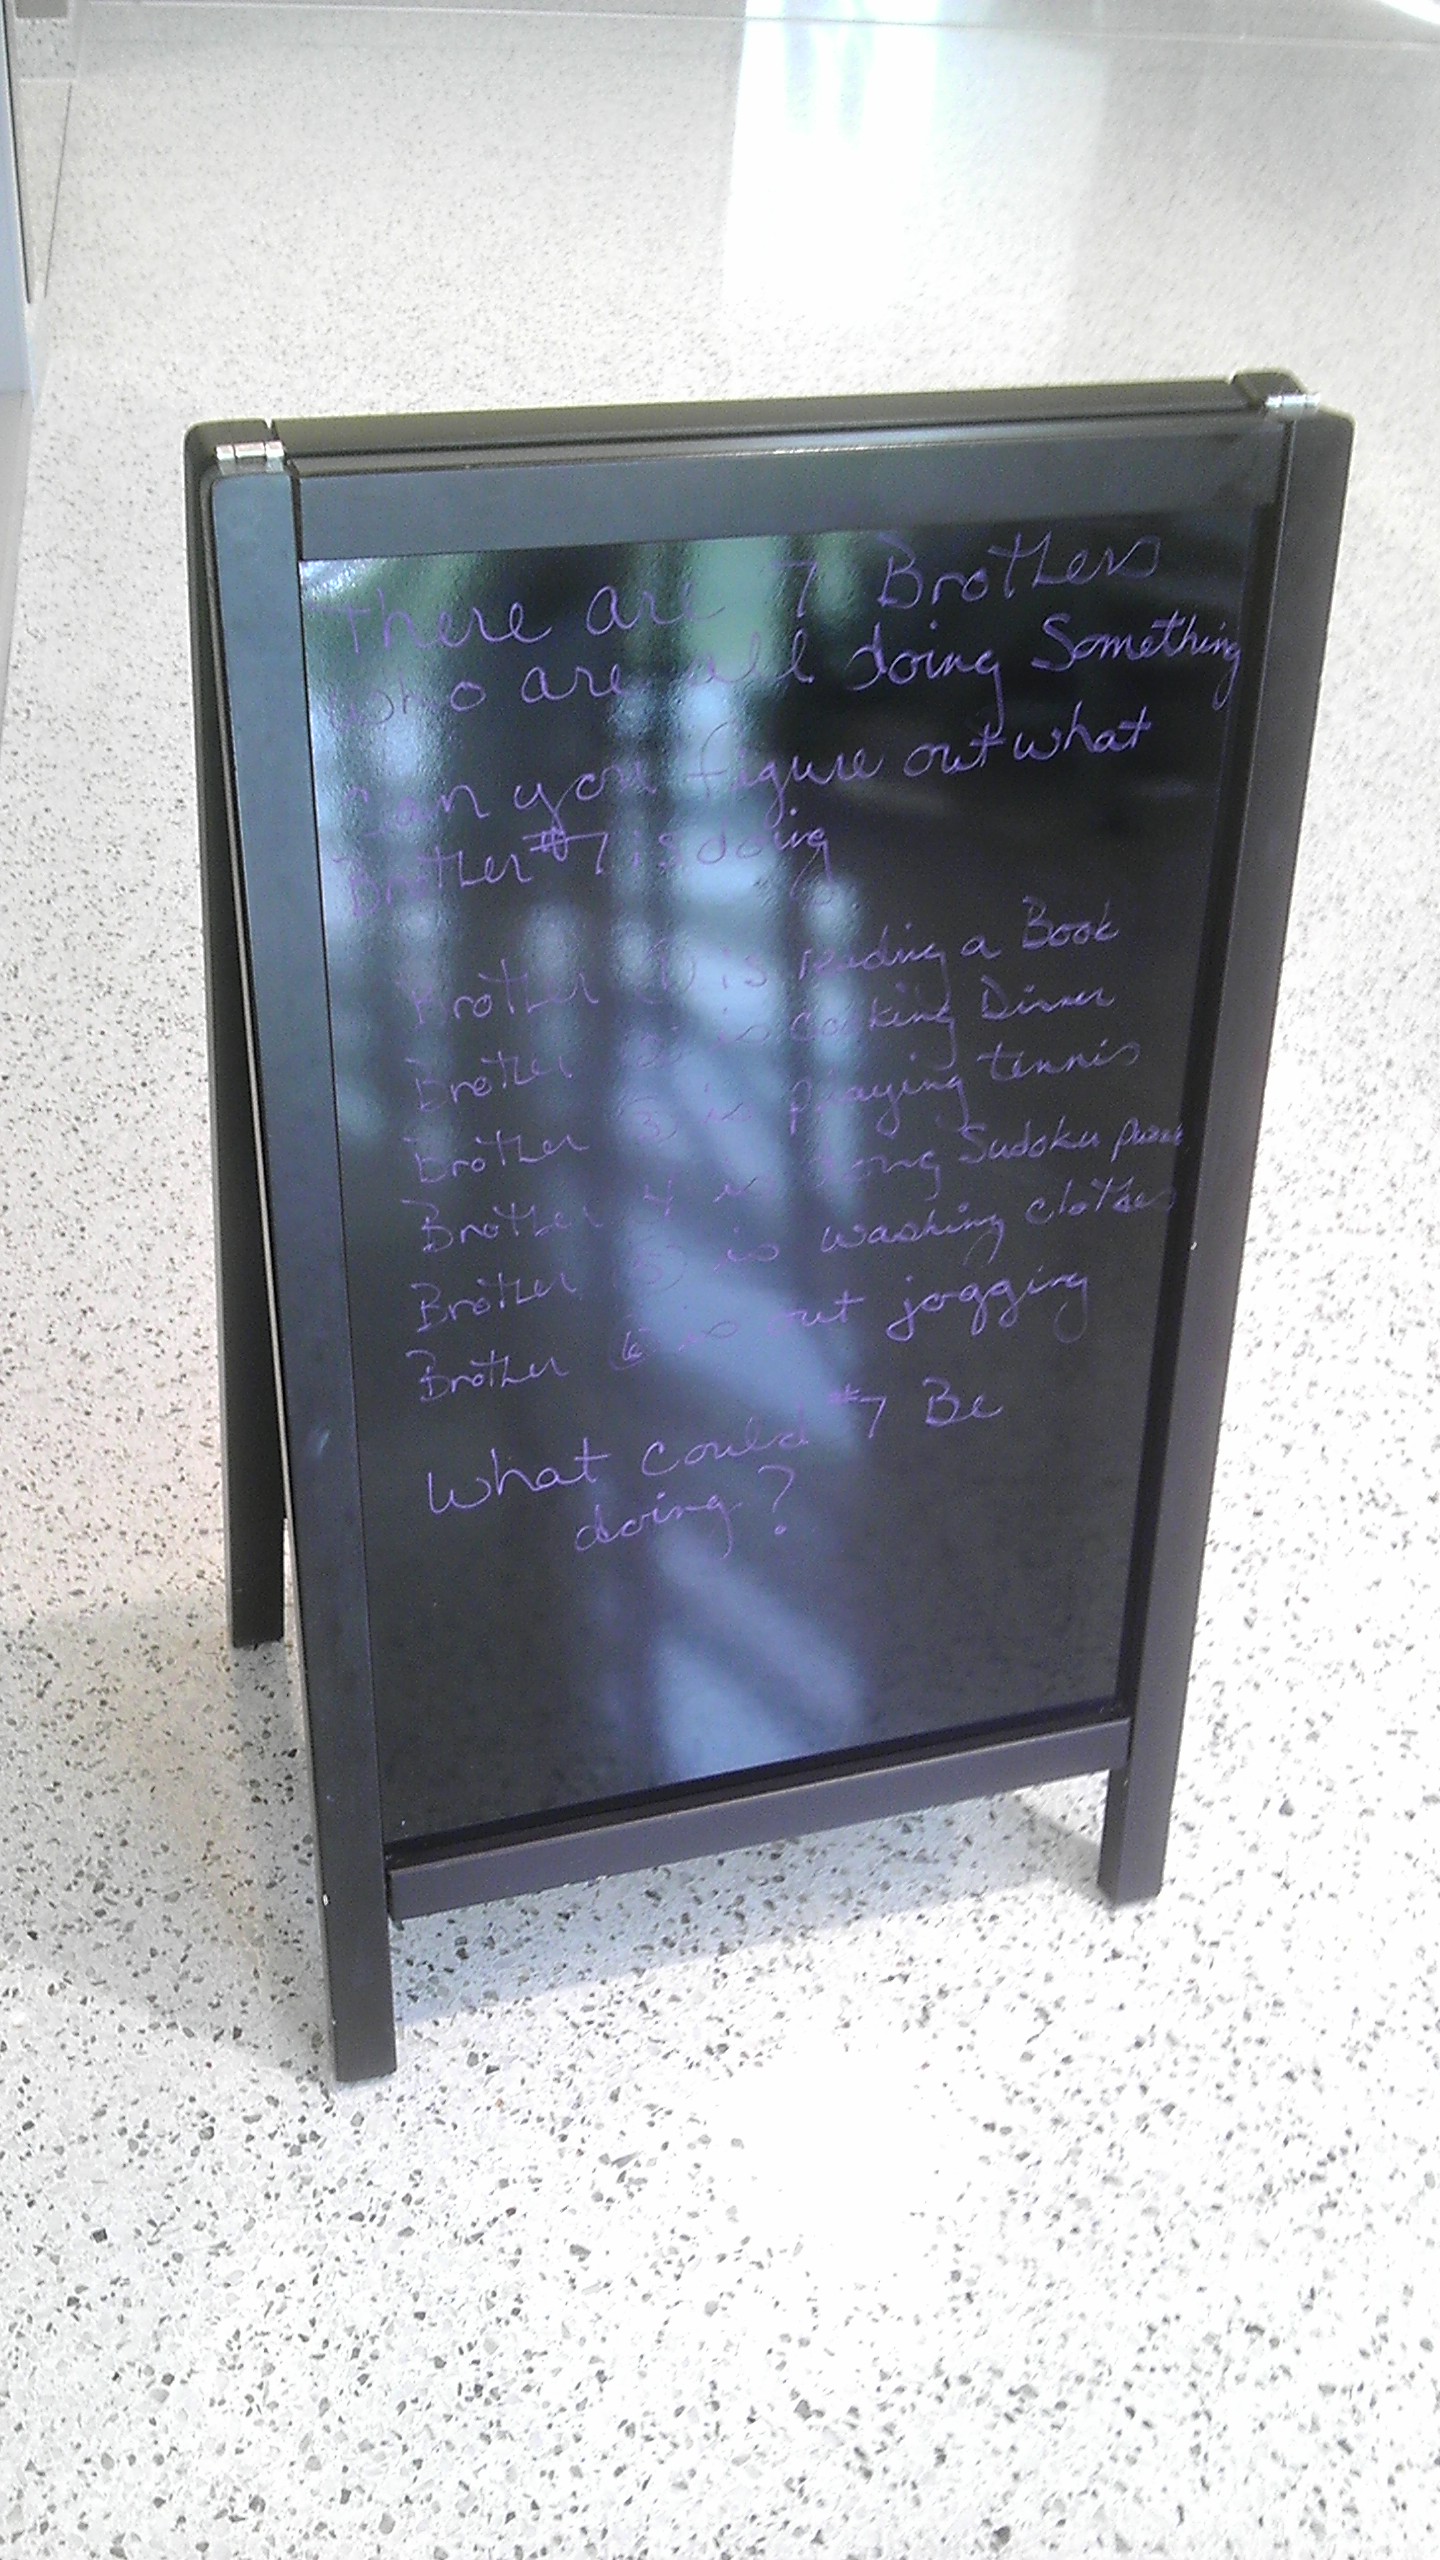 There are 7 Brothers
who are all doing Something
Can you figure out what
Brother #7 is doing
Brother 1 is reading a Book
Brother 2 is cooking Dinner
Brother 3 is playing tennis
Brother 4 is doing Sudoku
Brother 5 is washing clothes
Brother 6 is out jogging
What could #7 Be
doing?